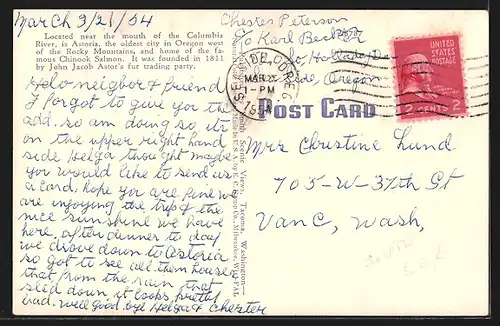 March 3/21/54
Located near the mouth of the Columbia
River, is Astoria, the oldest city in Oregon west
of the Rocky Mountains, and home of the fa-
mous Chinook Salmon. It was founded in 1811
by John Jacob Astor's fur trading party.
Helo neigbor & Friend
I forgot to give you the
add. so am doing so, its
on the upper right hand
side Helga thought maybe
you would like to send us
a card, hope you are fine we
are injoying the trip & the
nice sunshine we have
here, after dinner to day
we drove down to Astoria
so got to see all them house
that from the rain that
slied down it looks pretty
bad. well good bye Helga & Chester
Chester Peterson
c/o Karl Beck
Holladay Dr
side, Oregon
SEASIDE, OREG.
MAR 23
1-PM
1954
UNITED STATES
POSTAGE
2 CENTS 2
POST CARD
Smith Scenic Views, Tacoma, Washington
Made in U.S.A. by E. C. Kropp Co., Milwaukee, Wis.
Mrs Christine Lund
705-W-37th St
Vanc, Wash,